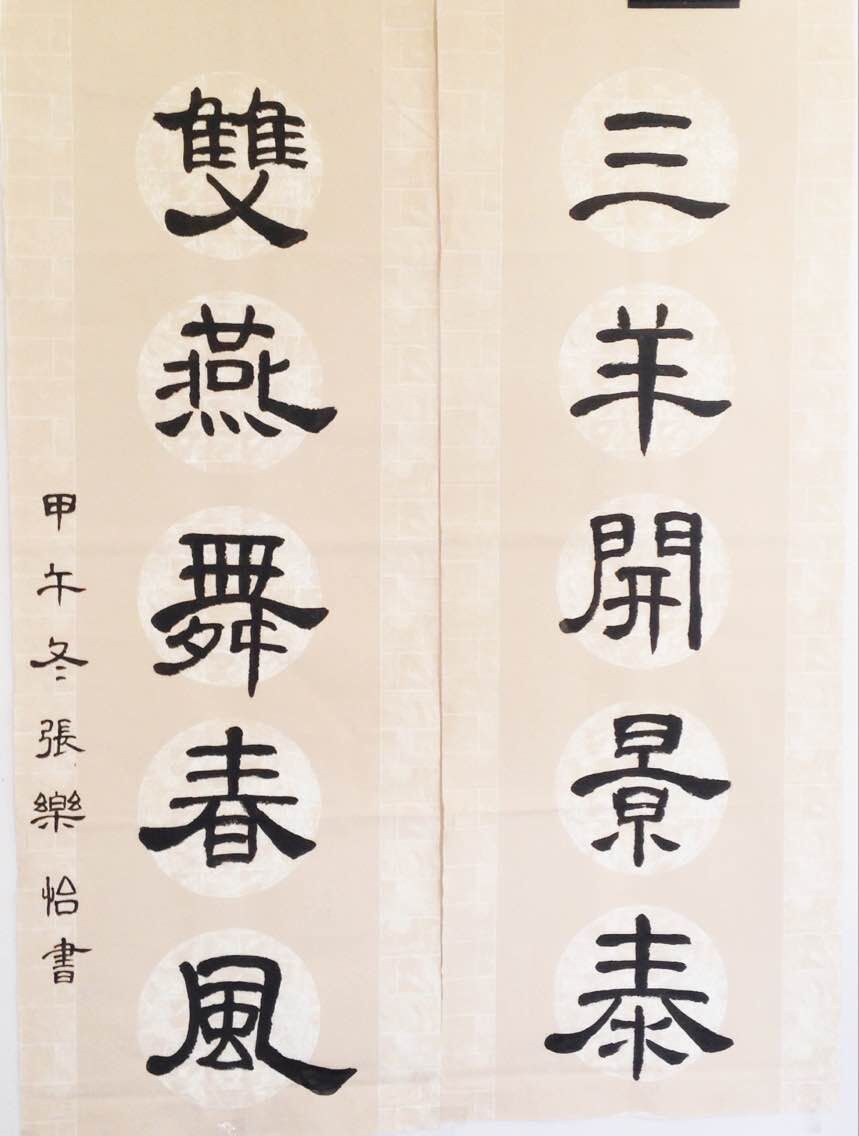 三羊開景泰
雙燕舞春風
甲午冬張樂怡書